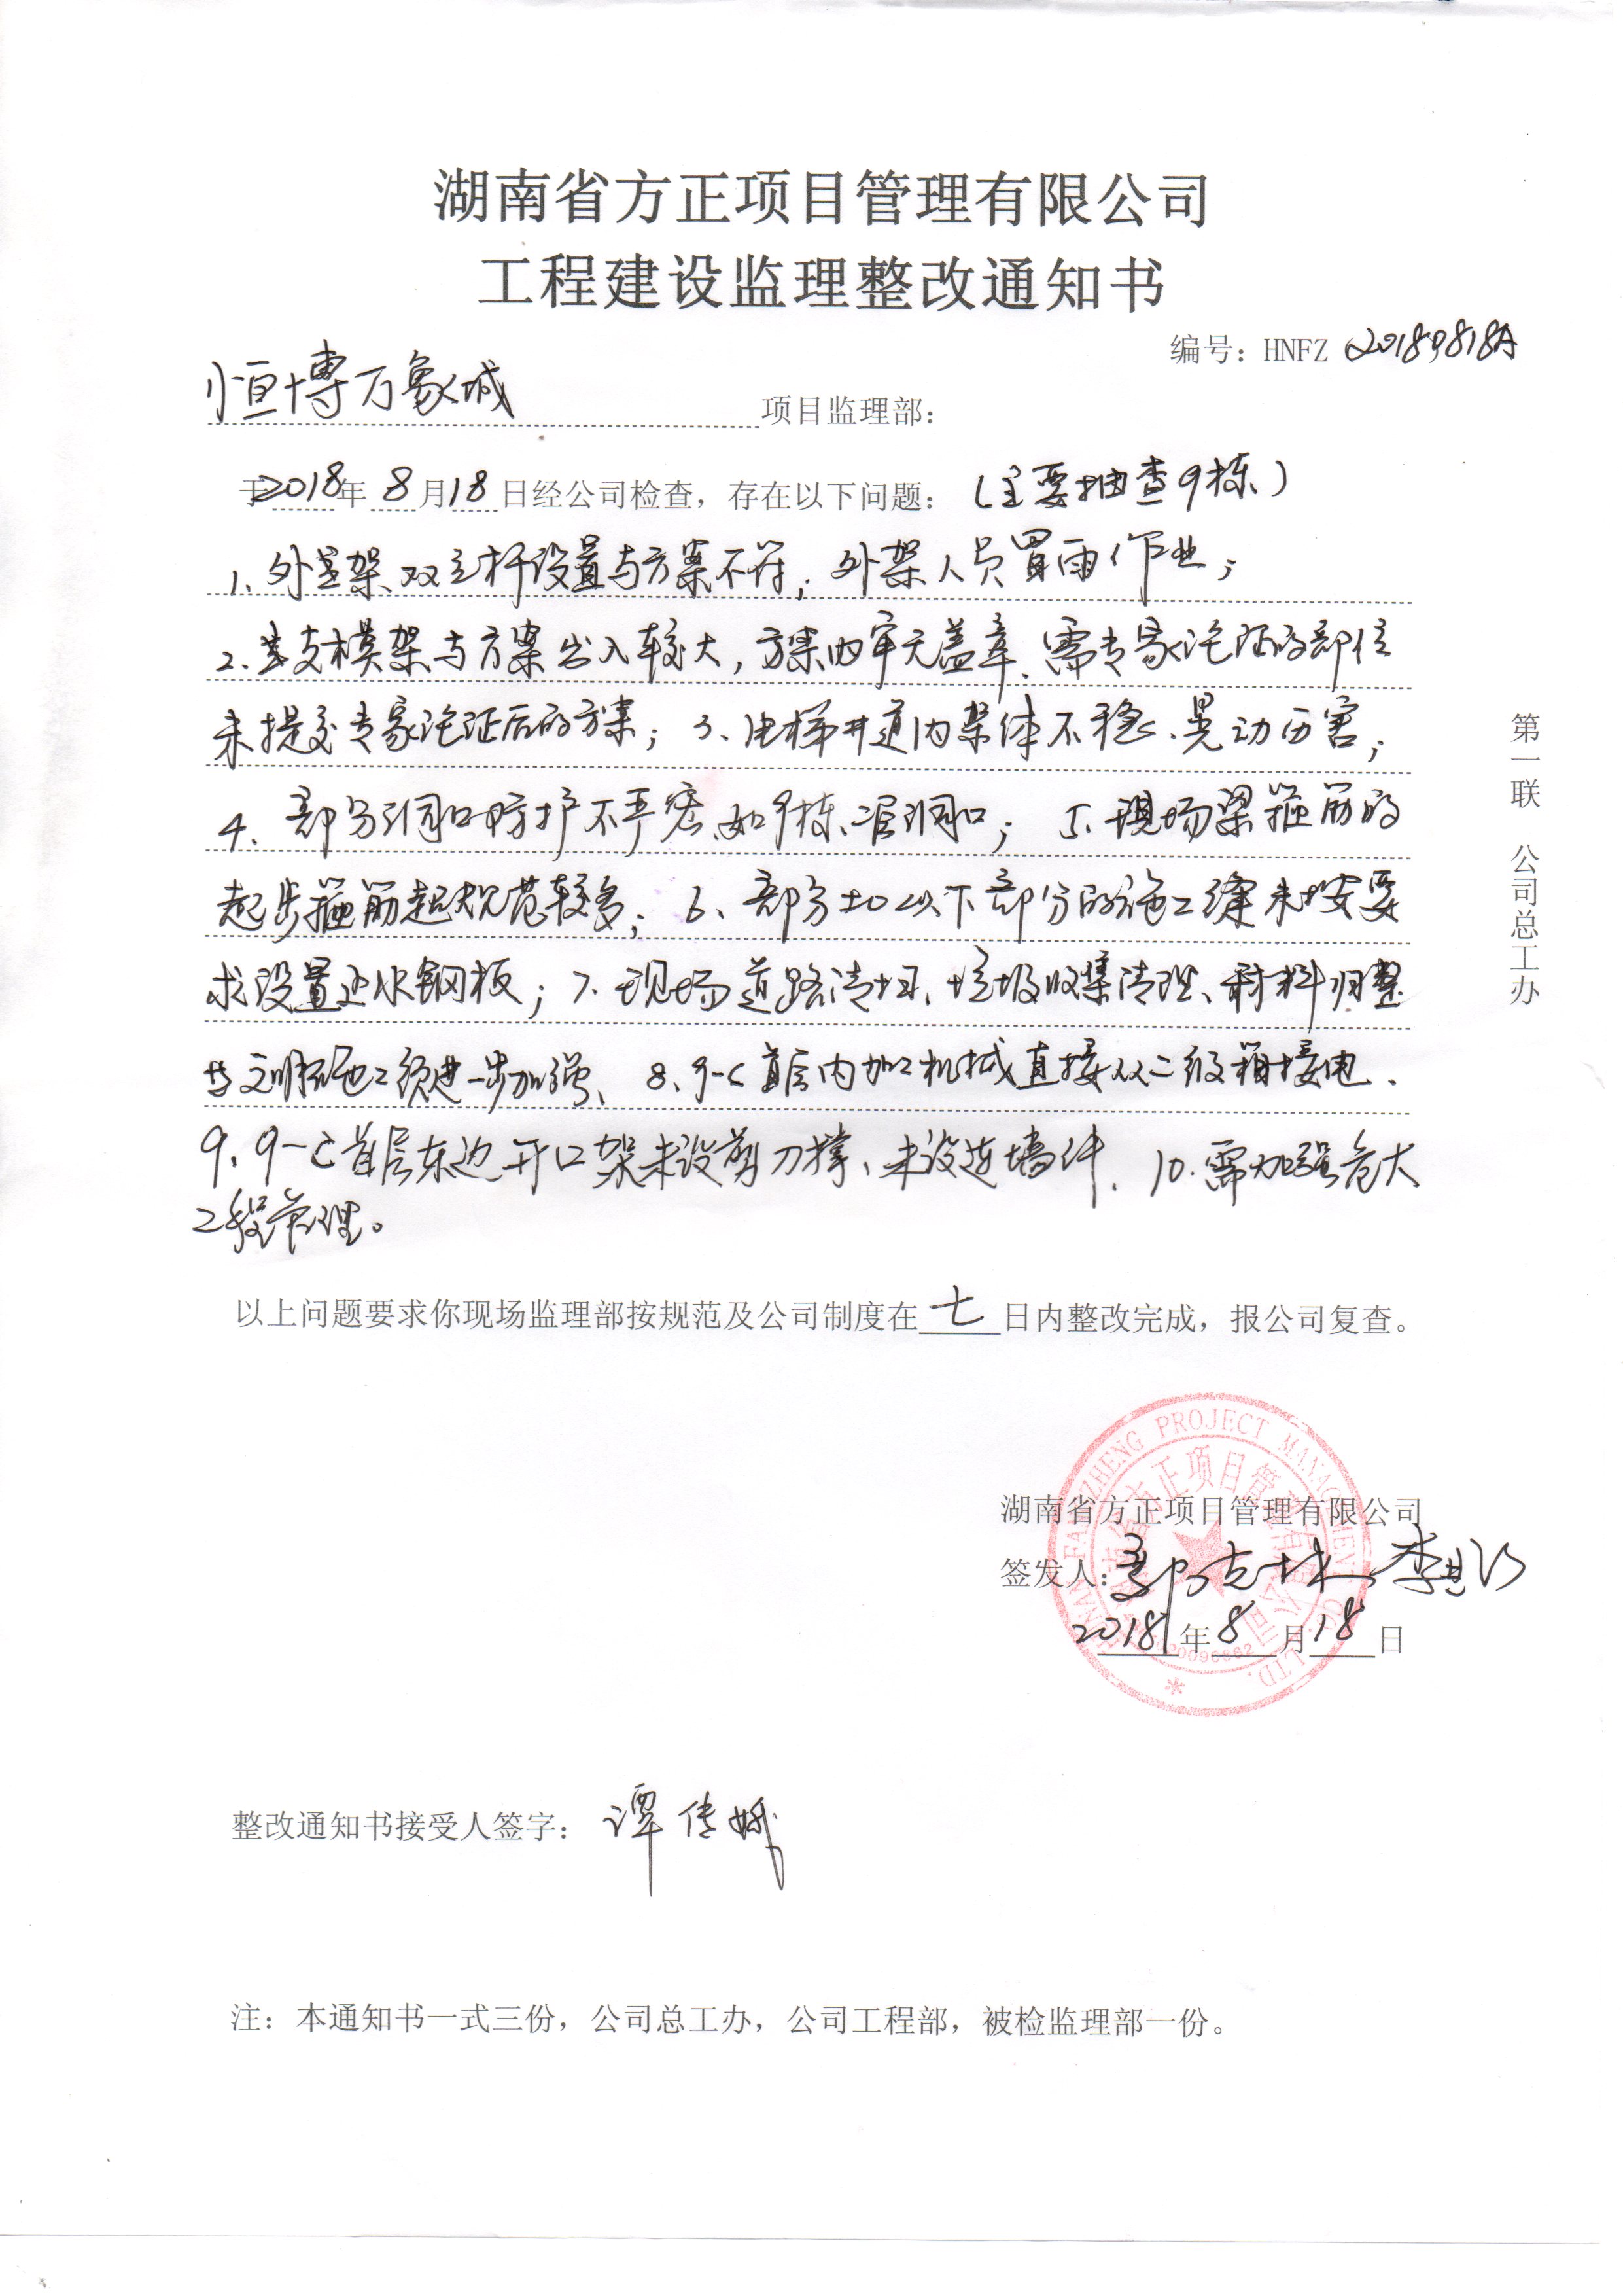 湖南省方正项目管理有限公司
工程建设监理整改通知书
编号：HNFZ 20180818A
恒博万象城 项目监理部：
于2018年8月18日经公司检查，存在以下问题：（主要抽查9栋）
1、外架双立杆设置与方案不符；外架人员冒雨作业；
2、支模架与方案出入较大，方案内审无盖章、需专家论证的部位
未提交专家论证后的方案；3、电梯井道内架体不稳、晃动历害；
4、部分洞口防护不严密、如9栋二层洞口；5、现场梁箍筋的
起步箍筋超规范较多；6、部分±0以下部分的施工缝未按要
求设置止水钢板；7、现场道路清扫、垃圾收集清理、材料归整
与文明施工须进一步加强、8、9-C首层内加工机械直接从二级箱接电、
9、9-C首层东边开口架未设剪刀撑、未设连墙件、10、需加强危大
工程管理。
以上问题要求你现场监理部按规范及公司制度在七日内整改完成，报公司复查。
湖南省方正项目管理有限公司
签发人：
2018年8月18日
HUNAN FANGZHENG PROJECT MANAGEMENT CO., LTD.
湖南省方正项目管理有限公司
整改通知书接受人签字：谭传娥
注：本通知书一式三份，公司总工办，公司工程部，被检监理部一份。
第一联 公司总工办